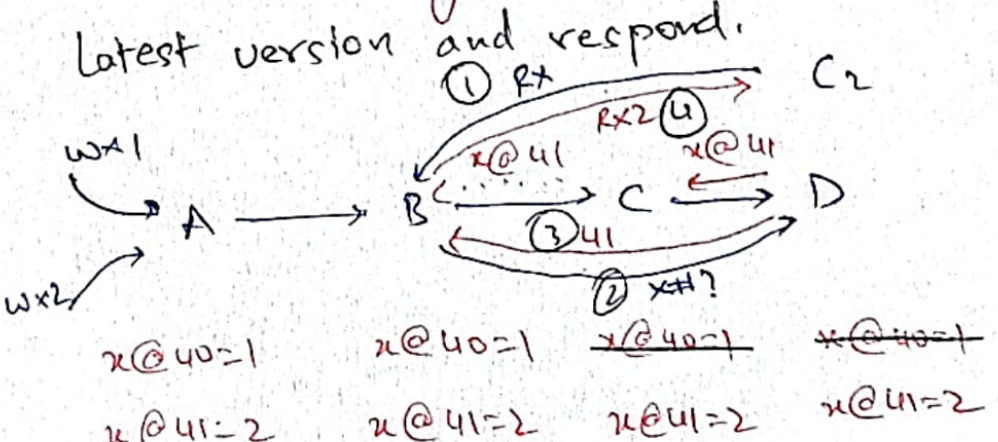 Latest version and respond.
① RX
C2
RX2 ④
WX1
x@41
x@41
A
B
C
D
③ 41
WX2
② X#?
x@40=1
x@40=1
x@40=1
x@40=1
x@41=2
x@41=2
x@41=2
x@41=2